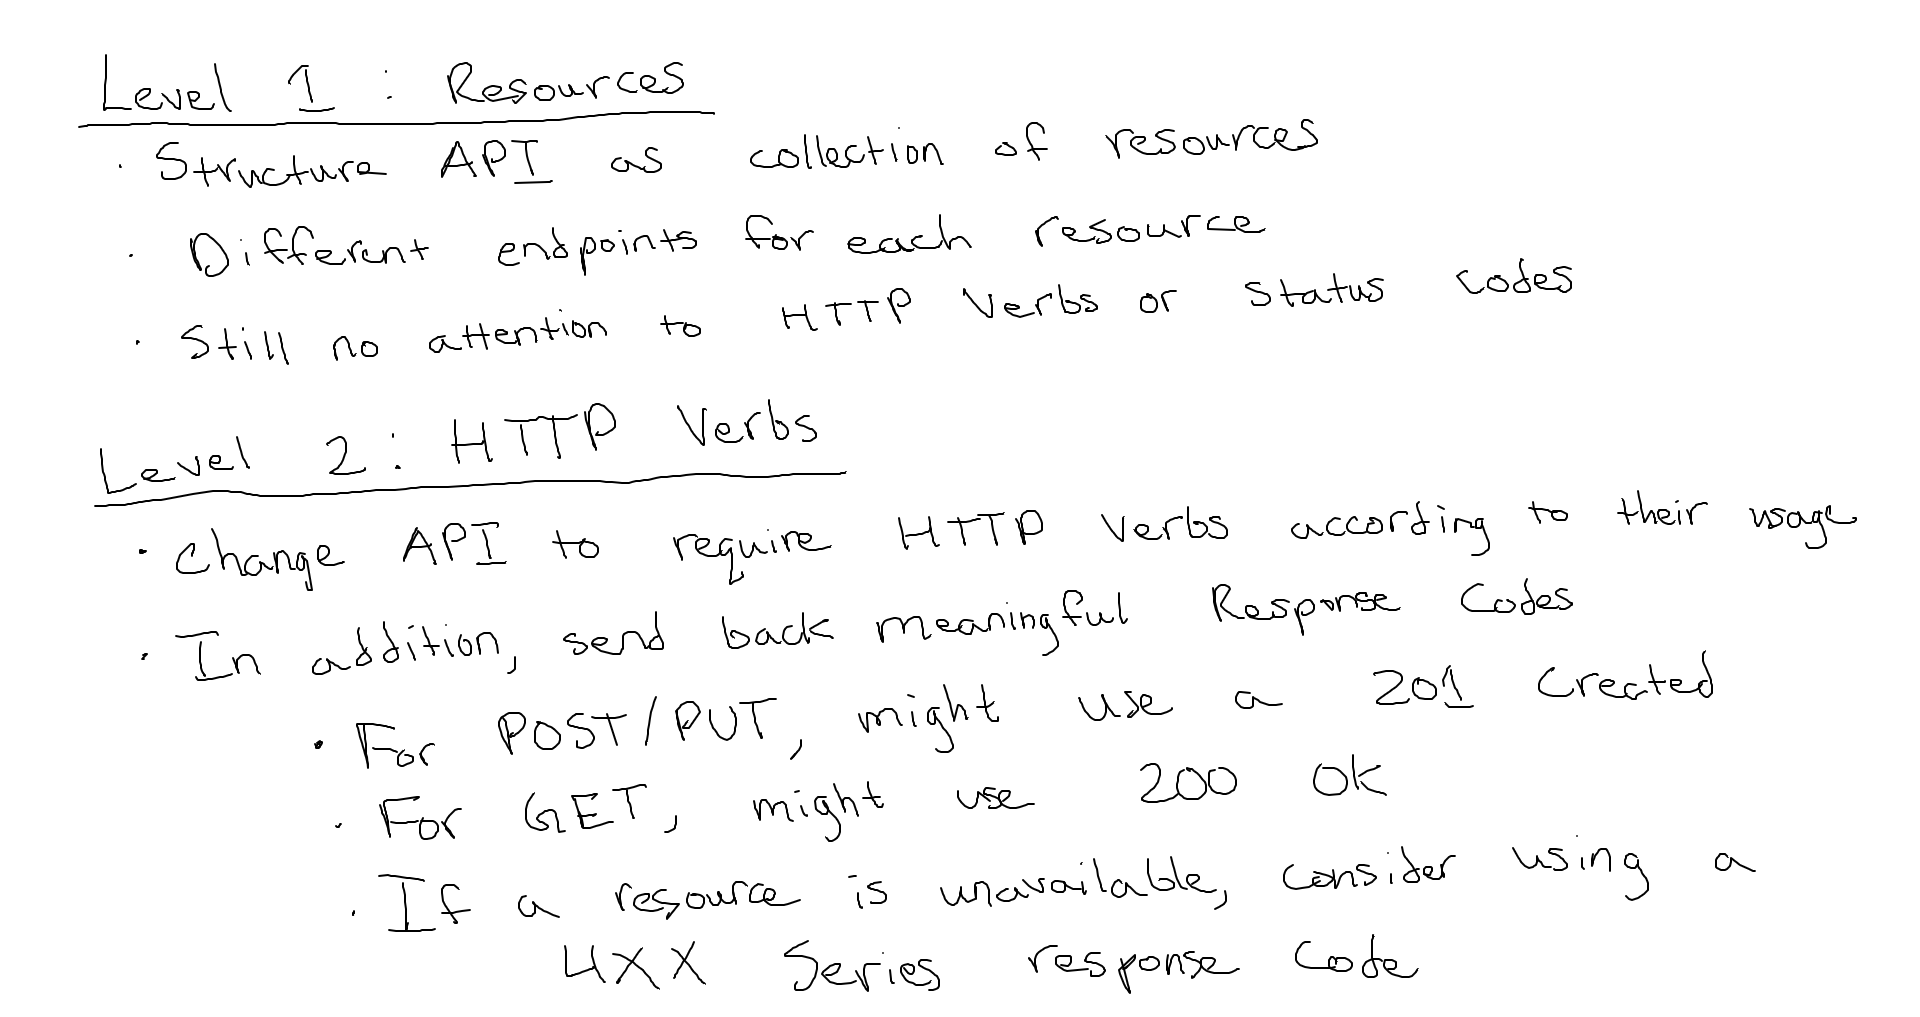 Level 1 : Resources
· Structure API as collection of resources
· Different endpoints for each resource
· Still no attention to HTTP Verbs or status codes
Level 2 : HTTP Verbs
· Change API to require HTTP Verbs according to their usage
· In addition, send back meaningful Response Codes
· For POST/PUT, might use a 201 Created
· For GET, might use 200 OK
· If a resource is unavailable, consider using a
4XX Series response Code